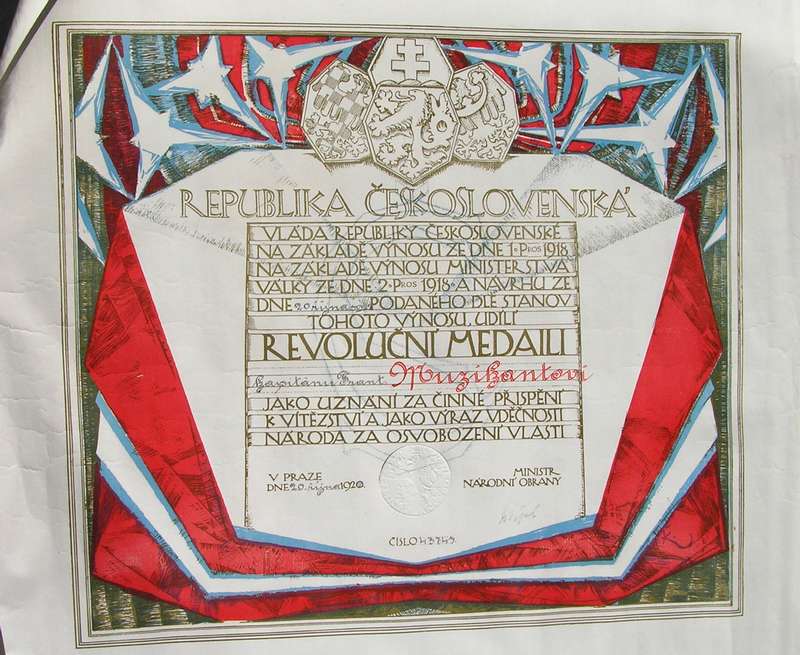 REPUBLIKA ČESKOSLOVENSKÁ
VLÁDA REPUBLIKY ČESKOSLOVENSKÉ
NA ZÁKLADĚ VÝNOSU ZE DNE 1. PROS 1918
NA ZÁKLADĚ VÝNOSU MINISTERSTVA
VÁLKY ZE DNE 2. PROS 1918 A NÁVRHU ZE
DNE 20. října PODANÉHO DLE STANOV
TOHOTO VÝNOSU, UDÍLÍ
REVOLUČNÍ MEDAILI
kapitánu Frant. Muzikantovi
JAKO UZNÁNÍ ZA ČINNÉ PŘISPĚNÍ
K VÍTĚZSTVÍ A JAKO VÝRAZ VDĚČNOSTI
NÁRODA ZA OSVOBOZENÍ VLASTI
V PRAZE
DNE 20. října 1920.
MINISTR
NÁRODNÍ OBRANY
ČÍSLO 43749.